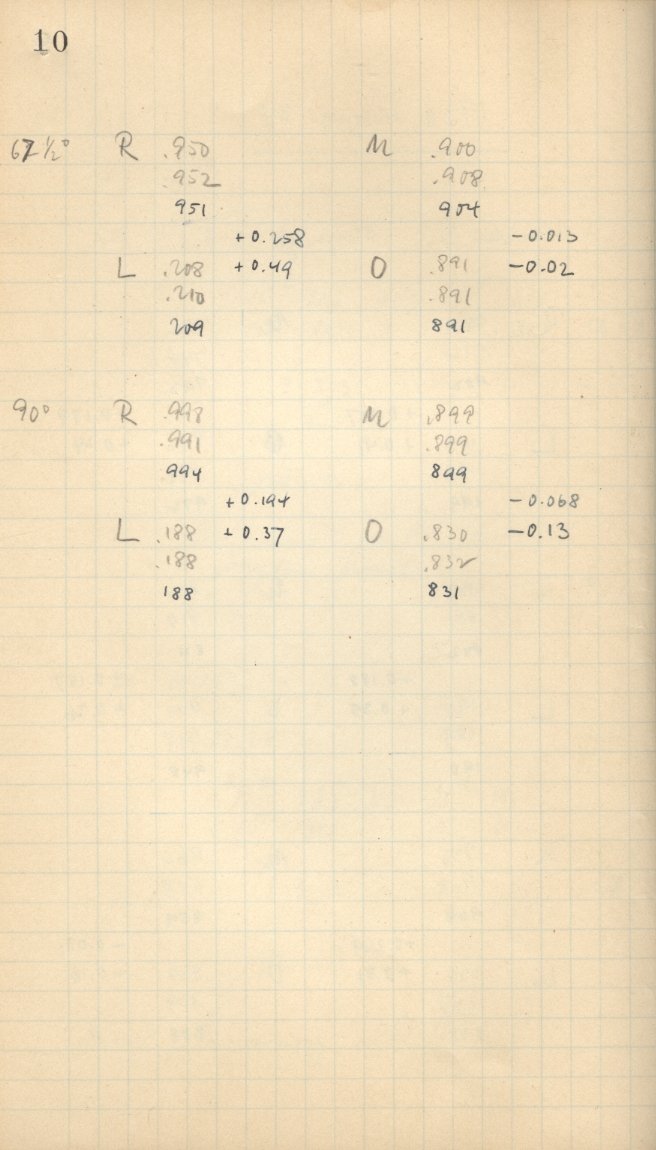 10
67 ½° R .950 M .900
.952 .908
951 904
+0.258 -0.013
L .208 +0.49 O .891 -0.02
.210 .891
209 891
90° R .998 M .899
.991 .899
994 899
+0.194 -0.068
L .188 +0.37 O .830 -0.13
.188 .832
188 831